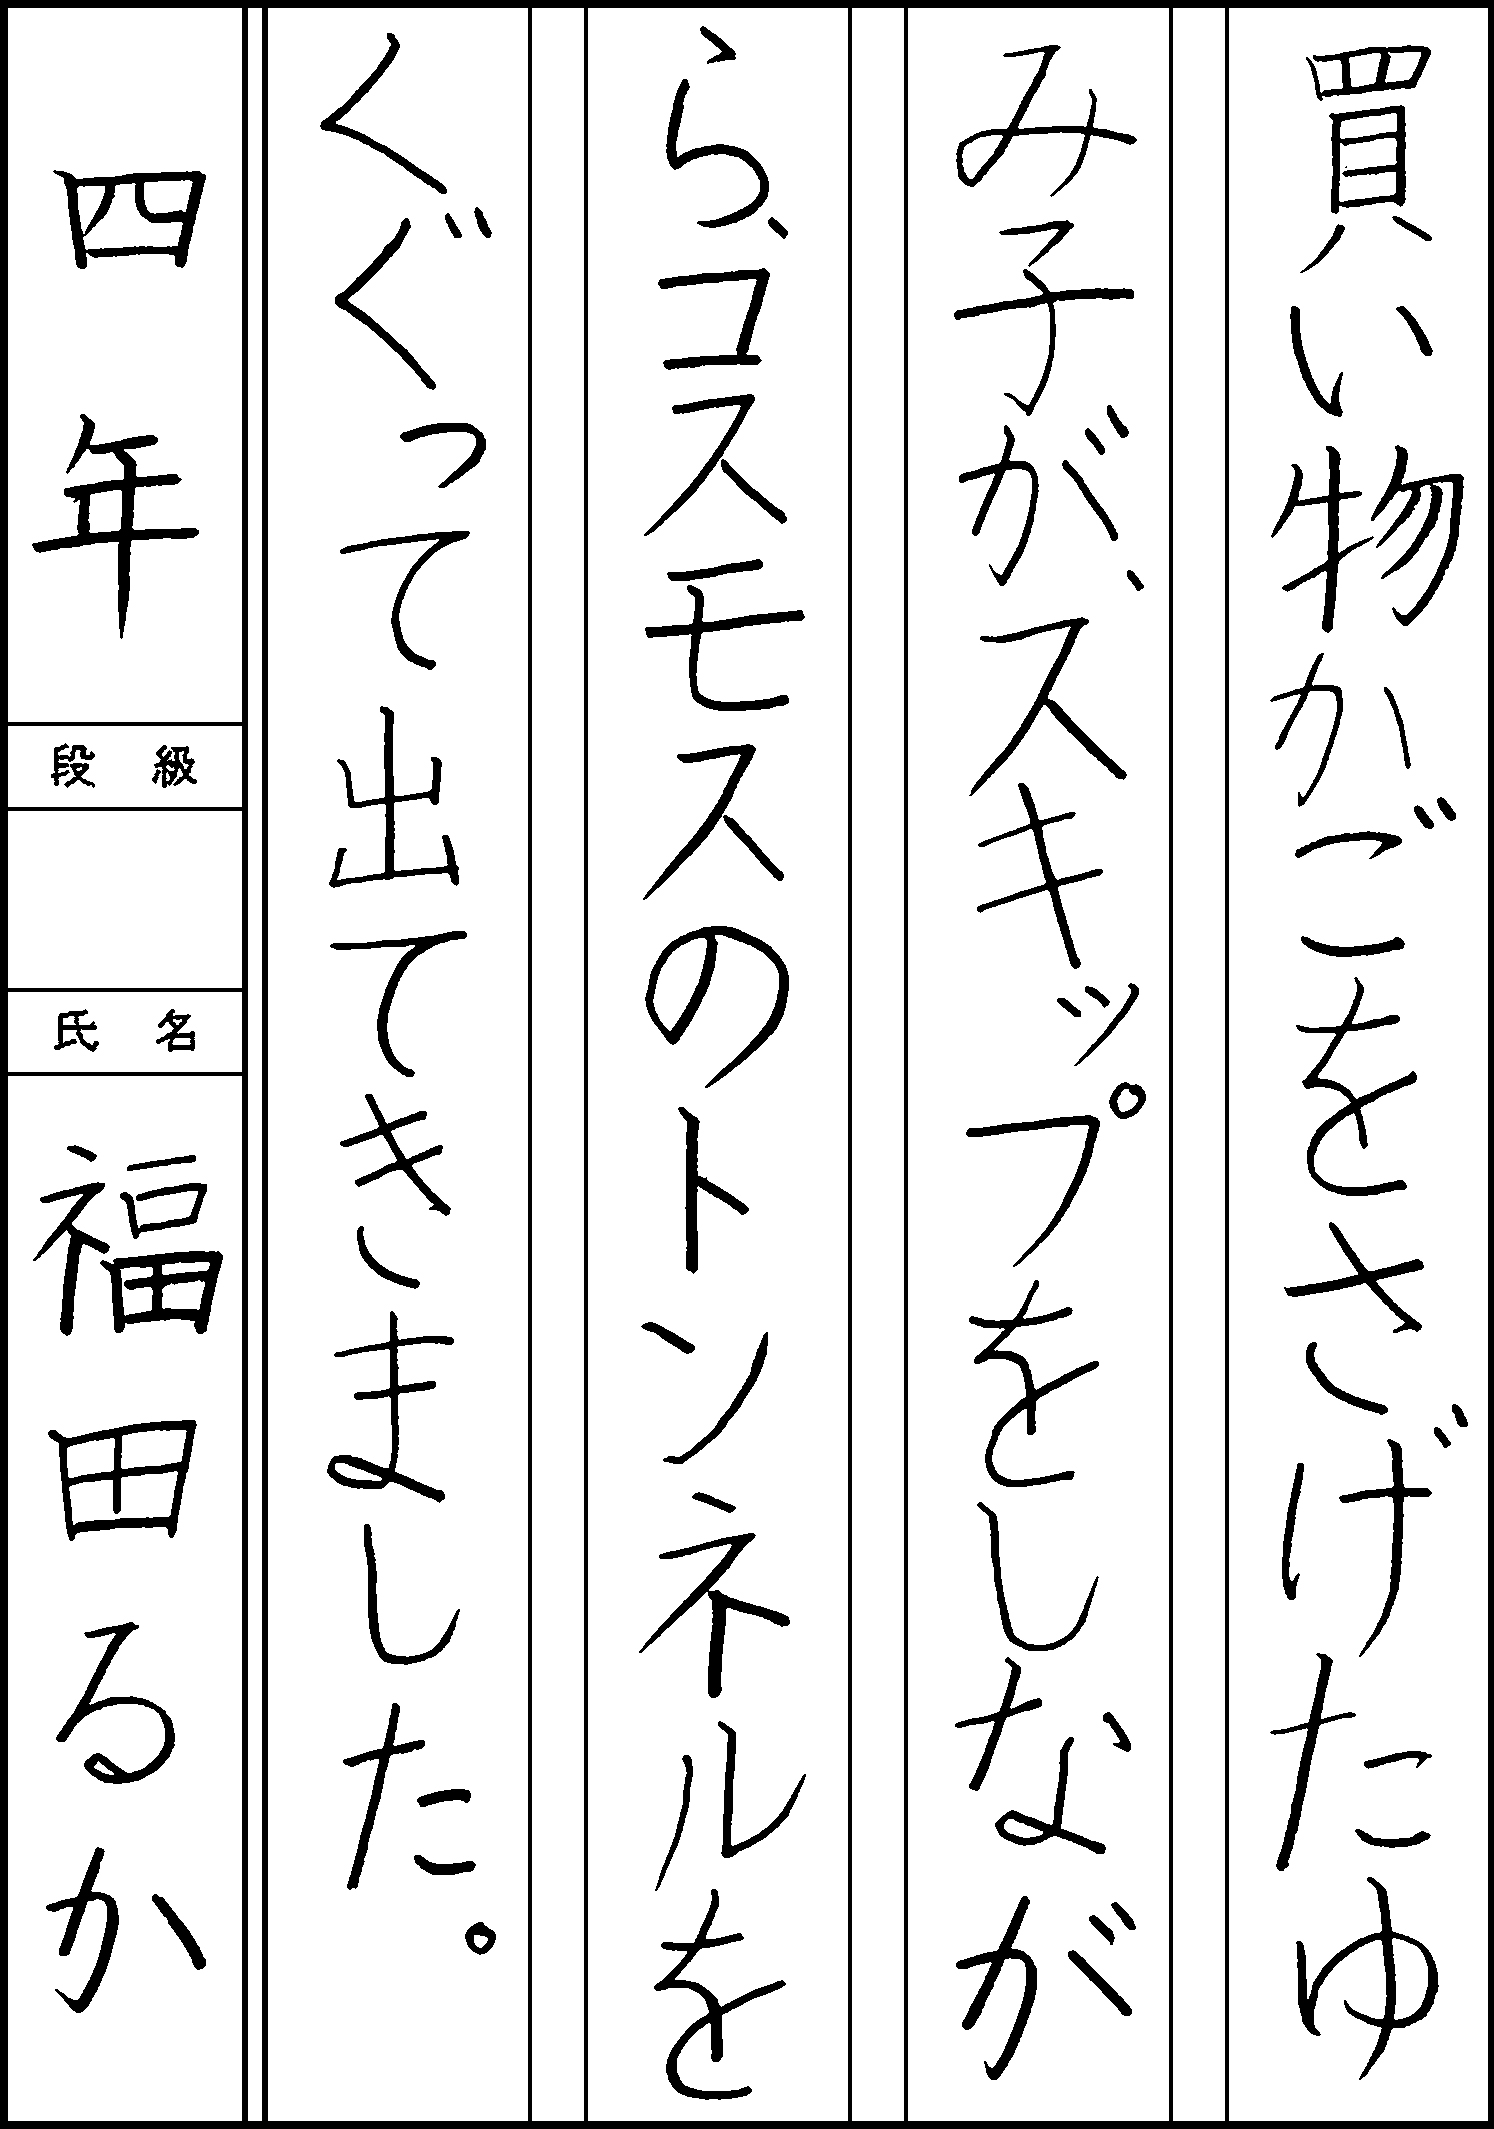 買い物かごをさげたゆ
み子が、スキップをしなが
ら、コスモスのトンネルを
くぐって出てきました。
四年
段級
氏名
福田るか